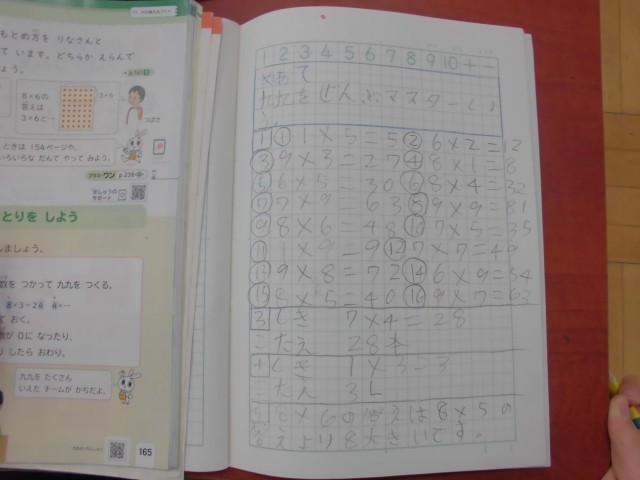 もとめ方を りなさんと
て います。どちらか えらんで
よう。
8×6の
答えは
3×6と…
3×6
つばさ
ときは 154ページや、
いろいろな だんで やって みよう。
プラス・ワン p.238
とりを しよう
しましょう。
数を つかって 九九を つくる。
8×3=24 8×…
て おく。
数が 0に なったり、
したら おわり。
九九を たくさん
いえた チームが かちだよ。
165
1 2 3 4 5 6 7 8 9 10 + -
めあて
九九をぜんぶマスターしよ
う
1 ① 1×5=5 ② 6×2=12
③ 9×3=27 ④ 8×1=8
⑤ 6×5=30 ⑥ 8×4=32
⑦ 7×9 63 ⑧ 9×9=81
⑨ 8×6=48 ⑩ 7×5=35
⑪ 1×9=9 ⑫ 7×7=49
⑬ 9×8=72 ⑭ 6×9=54
⑮ 8×5=40 ⑯ 9×7=63
3 しき 7×4=28
こたえ 28本
4 しき 1×3=3
こたえ 3L
5 8×6のこたえは8×5の
答えより8大きいです。